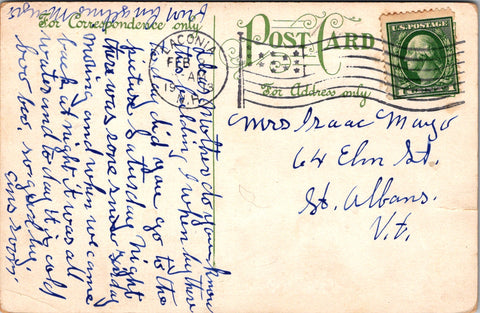 For Correspondence only
POST CARD
For Address only.
LACONIA
FEB
A
19
N.H.
U.S. POSTAGE
Mrs Isaac Mayo
64 Elm St.
St. Albans.
V.t.
Mother do you know
wedding I when
to day did you go to the
picture Saturday Night
there was some snow Sunday
morning and when we came
back at night it was all
water and to day it is cold
boo boo,
soon,